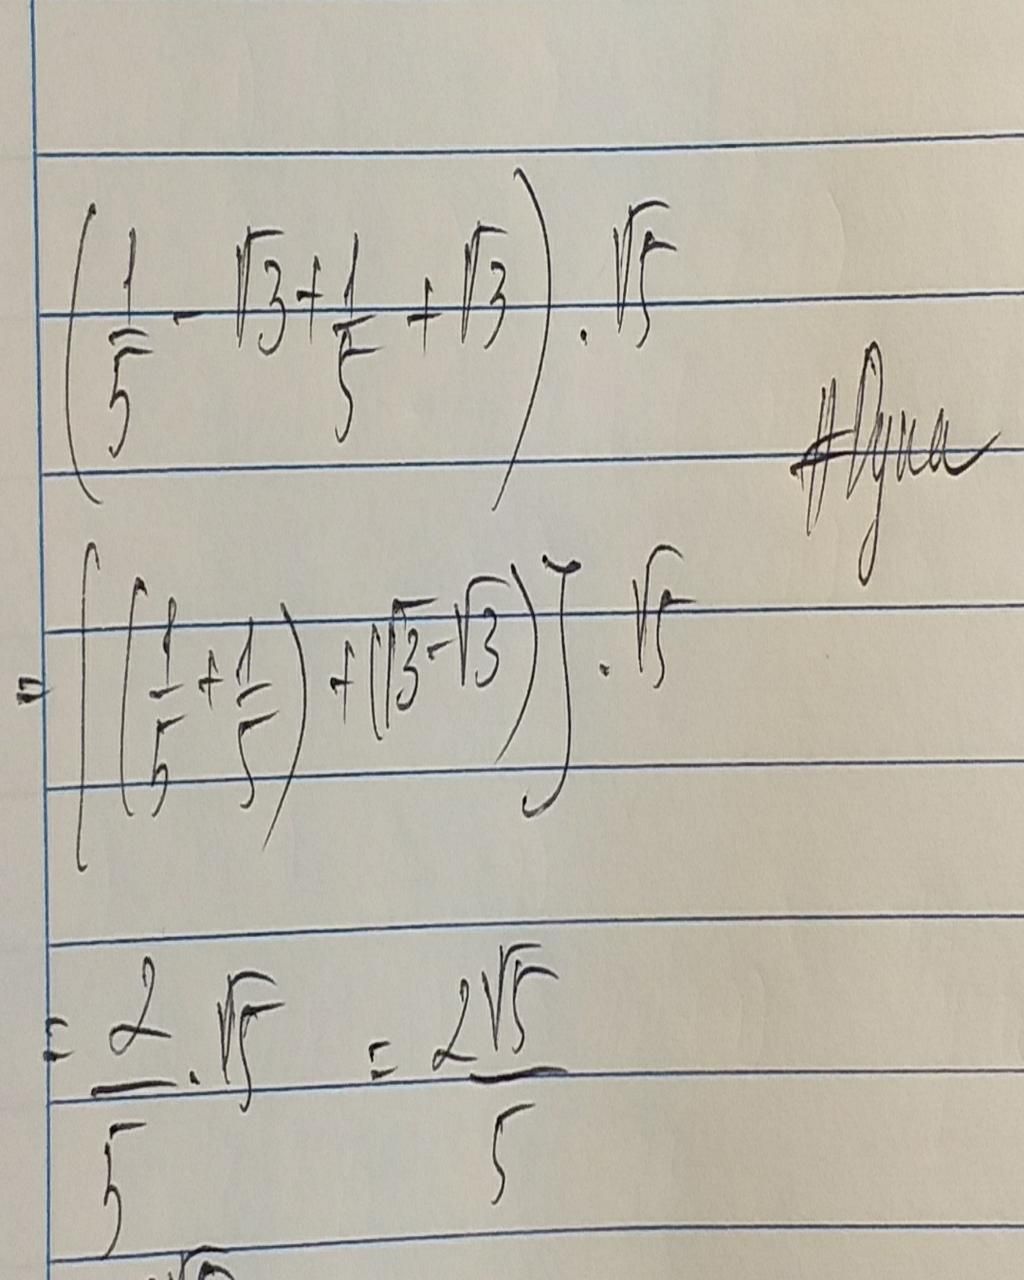 (1/5 - √3 + 1/5 + √3) . √5
= [(1/5 + 1/5) + (√3 - √3)] . √5
= 2/5 . √5 = 2√5/5